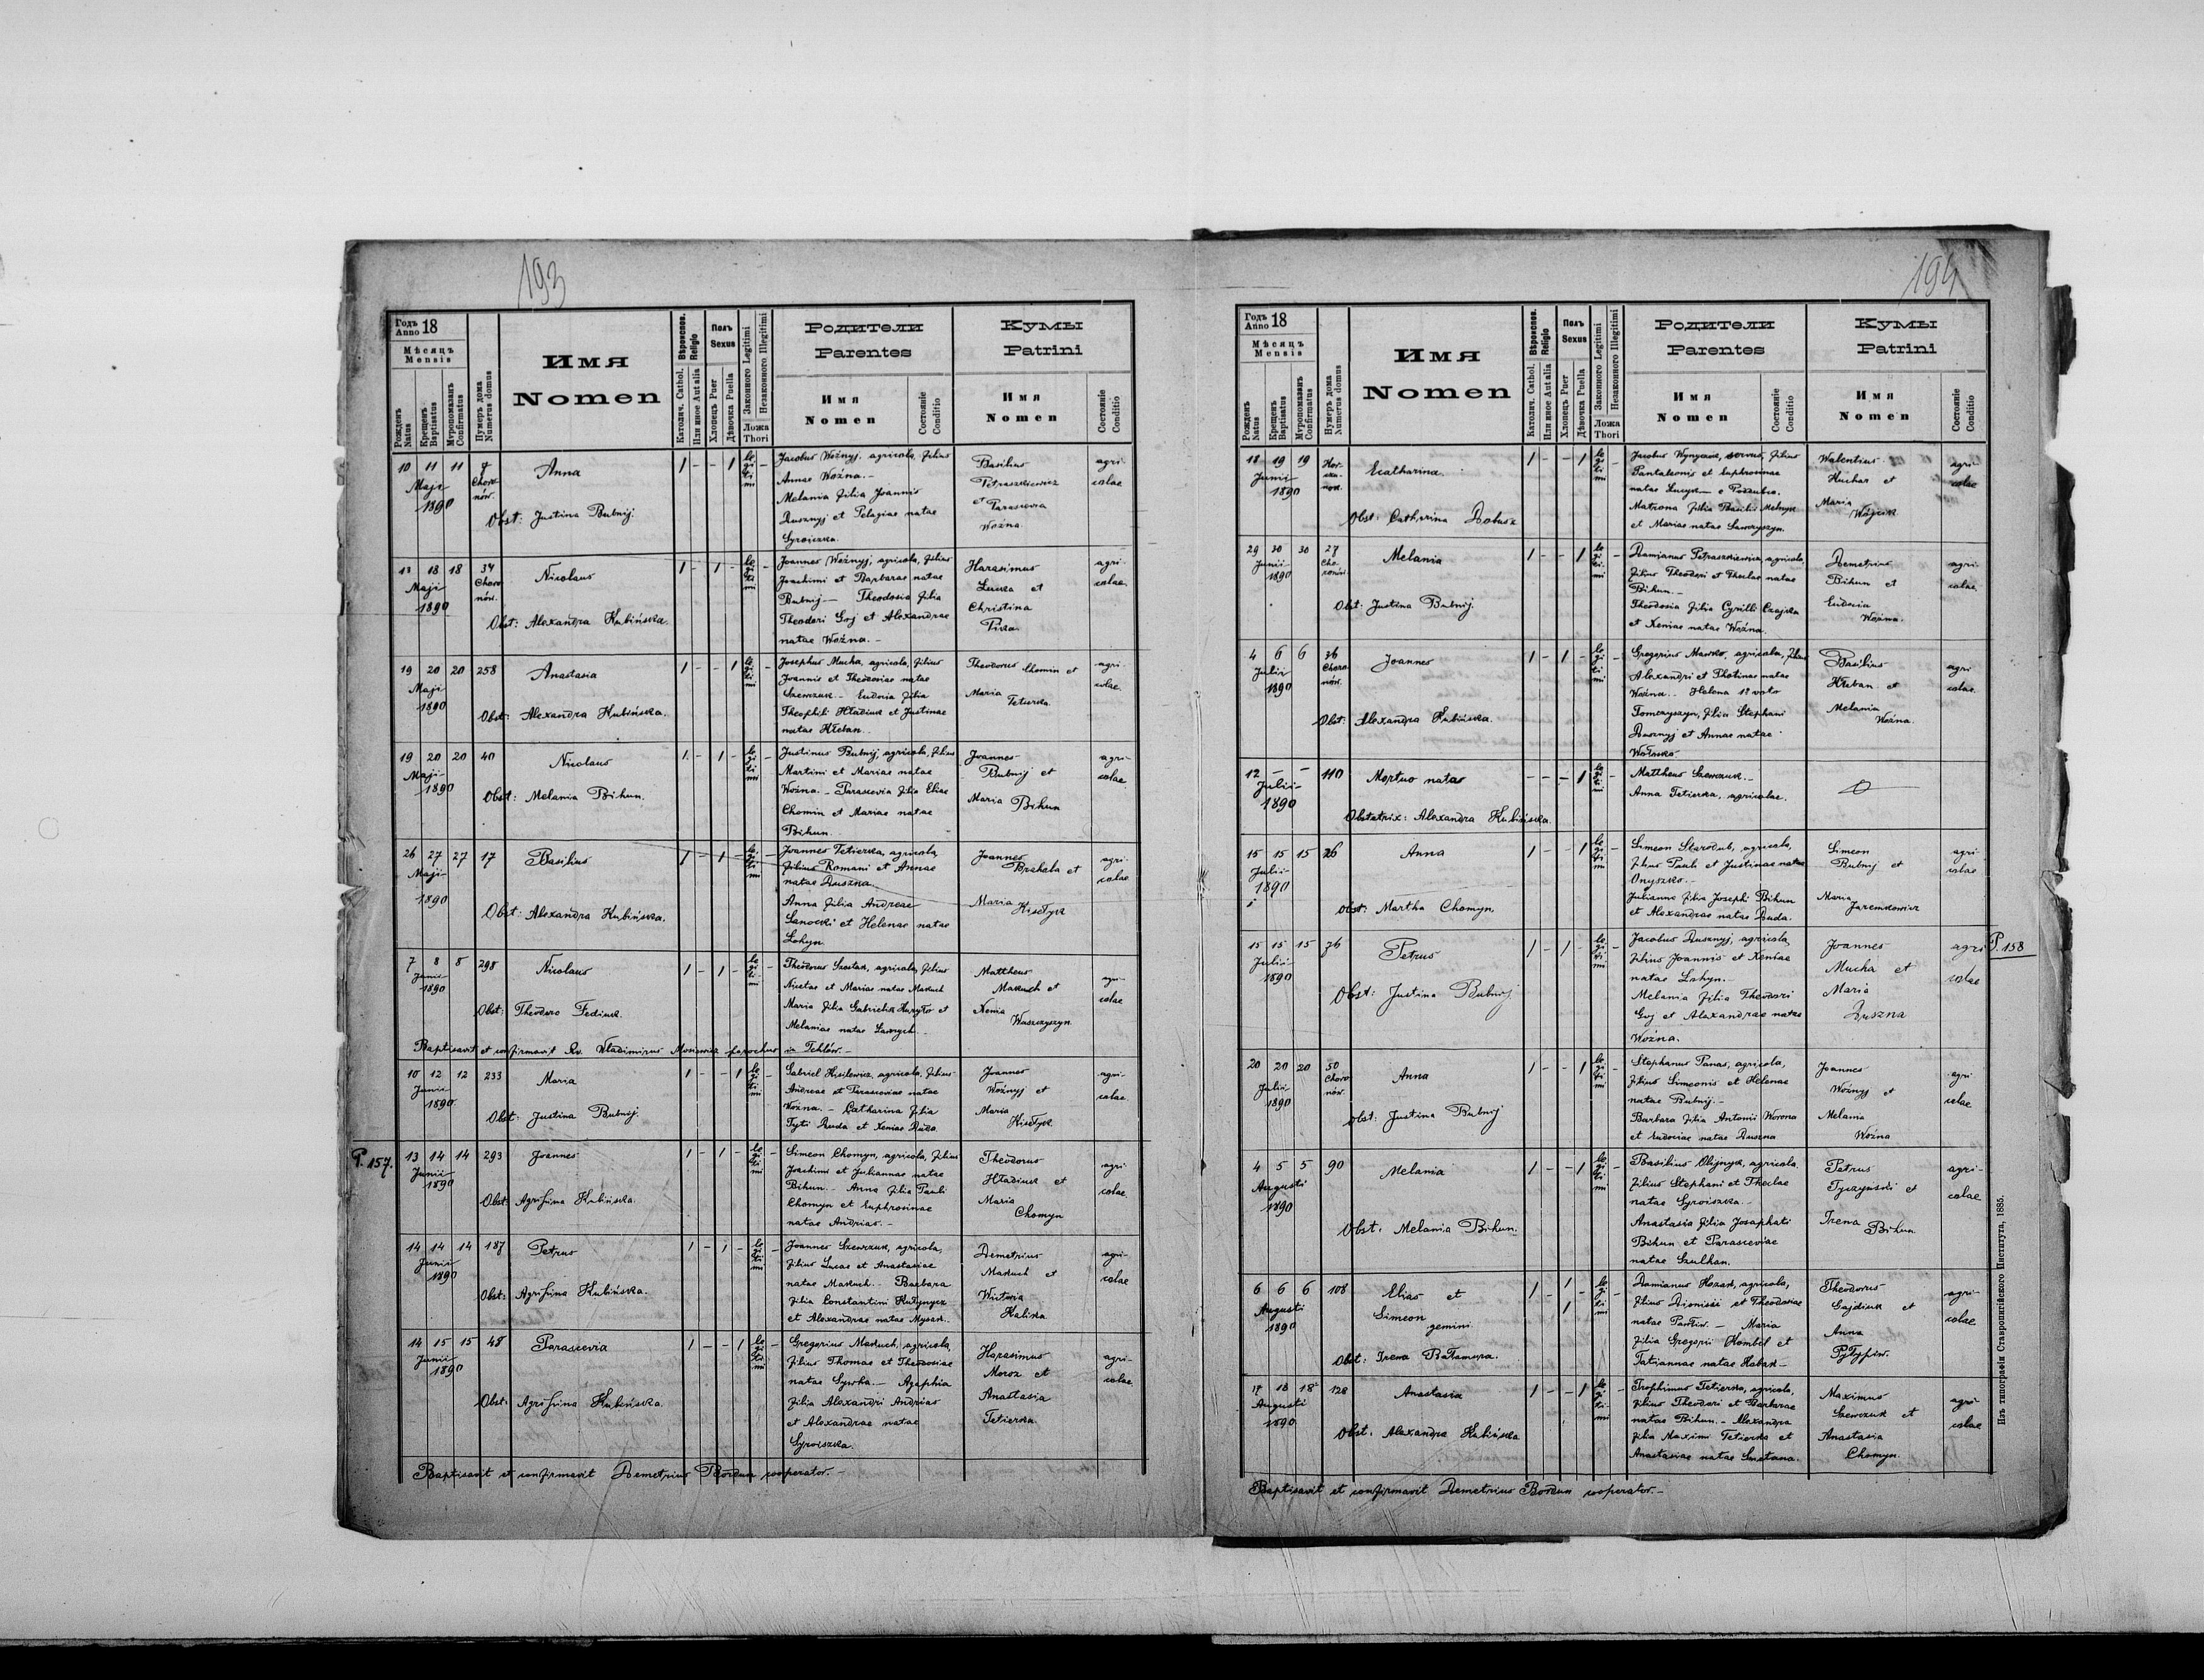 193
Годъ Anno 18
Мѣсяцъ Mensis
Рожденъ Natus
Крещенъ Baptisatus
Мѵропомазанъ Confirmatus
Нумеръ дома Numerus domus
Имя
Nomen
Вѣроиспов. Religio
Католич. Cathol.
Или иное Aut alia
Полъ Sexus
Хлопецъ Puer
Дѣвочка Puella
Законного Legitimi
Незаконного Illegitimi
Ложа Thori
Родители
Parentes
Имя
Nomen
Состояніе Conditio
Кумы
Patrini
Имя
Nomen
Состояніе Conditio
10 11 11 Maji 1890
Anna
Obst: Justina Bubnij
1 - - 1 legitimi -
Jacobus Woźnyj, agricola, filius
Annae Woźna.-
Melania filia Joannis
Rusznyj et Pelagiae natae
Syroiczka.
Basilius
Petraszkiewicz
et Parascevia
Woźna
agricolae
13 18 18 Maji 1890
34 Choronów.
Nicolaus
Obst: Alexandra Kubińska.
1 - 1 - legitimi -
Joannes Woźnyj, agricola, filius
Joachimi et Barbarae natae
Bubnij — Theodosia filia
Theodori Goj et Alexandrae
natae Woźna.-
Harasimus
et
Christina
agricolae
19 20 20 Maji 1890
258
Anastasia
Obst: Alexandra Kubińska.
1 - - 1 legitimi -
Josephus Mucha, agricola, filius
Joannis et Theodosiae natae
Szewczuk - Eudoxia filia
Theophili Hładiuk et Justinae
natae Hłeban.
Theodorus Chomin et
Maria
Tetierka
agricolae
19 20 20 Maji 1890
40
Nicolaus
Obst: Melania Bihun.
1 - 1 - legitimi
Justinus Bubnij, agricola, filius
Martini et Mariae natae
Woźna. - Parascevia filia Eliae
Chomin et Mariae natae
Bihun.
Joannes
Bubnij et
Maria Bihun
agricolae
26 27 27 Maji 1890
17
Basilius
Obst: Alexandra Kubińska.
1 - 1 - legitimi -
Joannes Tetierka, agricola,
filius Romani et Annae
natae Ruszna.
Anna filia Andreae
Sanocki et Helenae natae
Lohyn.
Joannes
et
Maria
Kisełyk
agricolae
7 8 8 Junii 1890
298
Nicolaus
Obst: Theodora Fediuk.
1 - 1 - legitimi
Theodorus Szostak, agricola, filius
Nicetae et Mariae natae Makuch
Maria filia Gabrielis et
Melaniae natae
Mattheus
Makuch et
Xenia
Waszczyszyn
agricolae
Baptisavit et confirmavit Rv. Wladimirus parochus in Tehlów.-
10 12 12 Junii 1890
233
Maria
Obst: Justina Bubnij.
1 - - 1 legitimi -
Gabriel Kisilewicz, agricola, filius
Andreae et Parasceviae natae
Woźna. - Catharina filia
Tyti Ruda et Xeniae
Joannes
Woźnyj et
Maria
Kisełyk
agricolae
P. 157.
13 14 14 Junii 1890
293
Joannes
Obst: Agrifina Kubińska.
1 - 1 - legitimi -
Simeon Chomyn, agricola, filius
Joachimi et Juliannae natae
Bihun. - Anna filia Pauli
Chomyn et Euphrosinae
natae Andrias. -
Theodorus
Hładiuk et
Maria
Chomyn
agricolae
14 14 14 Junii 1890
187
Petrus
Obst: Agrifina Kubińska.
1 - 1 - legitimi -
Joannes Szewczuk, agricola,
filius Lucae et Anastasiae
natae Makuch. Barbara
filia Constantini
et Alexandrae natae
Demetrius
Makuch et
agricolae
14 15 15 Junii 1890
48
Parascevia
Obst: Agrifina Kubińska.
1 - - 1 legitimi
Gregorius Makuch, agricola,
filius Thomae et Theodosiae
natae - Agaphia
filia Alexandri Andrias
et Alexandrae natae
Syroiczka.
Harasimus
Moroz et
Anastasia
Tetierka
agricolae
Baptisavit et confirmavit Demetrius Bordun cooperator.-
194
Годъ Anno 18
Мѣсяцъ Mensis
Рожденъ Natus
Крещенъ Baptisatus
Мѵропомазанъ Confirmatus
Нумеръ дома Numerus domus
Имя
Nomen
Вѣроиспов. Religio
Католич. Cathol.
Или иное Aut alia
Полъ Sexus
Хлопецъ Puer
Дѣвочка Puella
Законного Legitimi
Незаконного Illegitimi
Ложа Thori
Родители
Parentes
Имя
Nomen
Состояніе Conditio
Кумы
Patrini
Имя
Nomen
Состояніе Conditio
18 19 19 Junii 1890
Ecatharina
Obst: Catharina
1 - - 1 legitimi
Jacobus servus, filius
Pantaleonis et Euphrosinae
natae
Matrona filia Basilii Melnyk
et Mariae natae
Walentius
Kuchar et
Maria
Wójcik
agricolae
29 30 30 Junii 1890
27 Choronów
Melania
Obst: Justina Bubnij.
1 - - 1 legitimi -
Damianus Petraszkiewicz, agricola,
filius Theodori et Theclae natae
Bihun. -
Theodosia filia Cyrilli Czajka
et Xeniae natae Woźna.
Demetrius
Bihun et
Eudocia
Woźna.
agricolae
4 6 6 Julii 1890
36 Choronów.
Joannes
Obst: Alexandra Kubińska.
1 - 1 - legitimi
Gregorius agricola, filius
Alexandri et Photinae natae
Woźna. - Helena 1º voto
Tomczyszyn, filia Stephani
Rusznyj et Annae natae
Basilius
Hłeban et
Melania
Woźna.
agricolae
12 - - Julii 1890
110
Mortuo natae
Obstetrix: Alexandra Kubińska.
- - - 1 legitimi -
Mattheus Szewczuk.-
Anna Tetierka, agricolae.
15 15 15 Julii 1890
26
Anna
Obst: Martha Chomyn.
1 - - 1 legitimi -
Simeon Starodub, agricola,
filius Pauli et Justinae natae
Onyszko.-
Julianna filia Josephi Bihun
et Alexandrae natae Ruda.
Simeon
Bubnij et
Maria
Jaremkowicz
agricolae
P. 158
15 15 15 Julii 1890
76
Petrus
Obst: Justina Bubnij
1 - 1 - legitimi -
Jacobus Rusznyj, agricola,
filius Joannis et Xeniae
natae Lohyn.
Melania filia Theodori
Goj et Alexandrae natae
Woźna.
Joannes
Mucha et
Maria
Ruszna
agricolae
20 20 20 Julii 1890
50 Choronów.
Anna
Obst: Justina Bubnij
1 - - 1 legitimi
Stephanus Panas, agricola,
filius Simeonis et Helenae
natae Bubnij.-
Barbara filia Antonii Worona
et Eudociae natae Ruszna
Joannes
Woźnyj et
Melania
Woźna
agricolae
4 5 5 Augusti 1890
90
Melania
Obst: Melania Bihun.
1 - - 1 legitimi -
Basilius Olijnyk, agricola,
filius Stephani et Theclae
natae Syroiczka. -
Anastasia filia Josaphati
Bihun et Parasceviae
natae Szulhan.
Petrus
Tyczyński et
Irena
Bihun
agricolae
6 6 6 Augusti 1890
108
Elias et
Simeon
gemini
Obst: Irena Bałamura.
1 - 1 1 - legitimi -
Damianus Kozak, agricola,
filius Dionisii et Theodosiae
natae - Maria
filia Gregorii et
Tatiannae natae
Theodorus
Gajdiuk et
Anna
agricolae
17 18 18 Augusti 1890
128
Anastasia
Obst. Alexandra Kubińska
1 - - 1 legitimi -
Trophimus Tetierka, agricola,
filius Theodori et Barbarae
natae Bihun. - Alexandra
filia Maximi Tetierka et
Anastasiae natae Smetana.
Maximus
Szewczuk et
Anastasia
Chomyn.
agricolae
Baptisavit et confirmavit Demetrius Bordun cooperator.-
Изъ типографіи Ставропигійского Института, 1885.